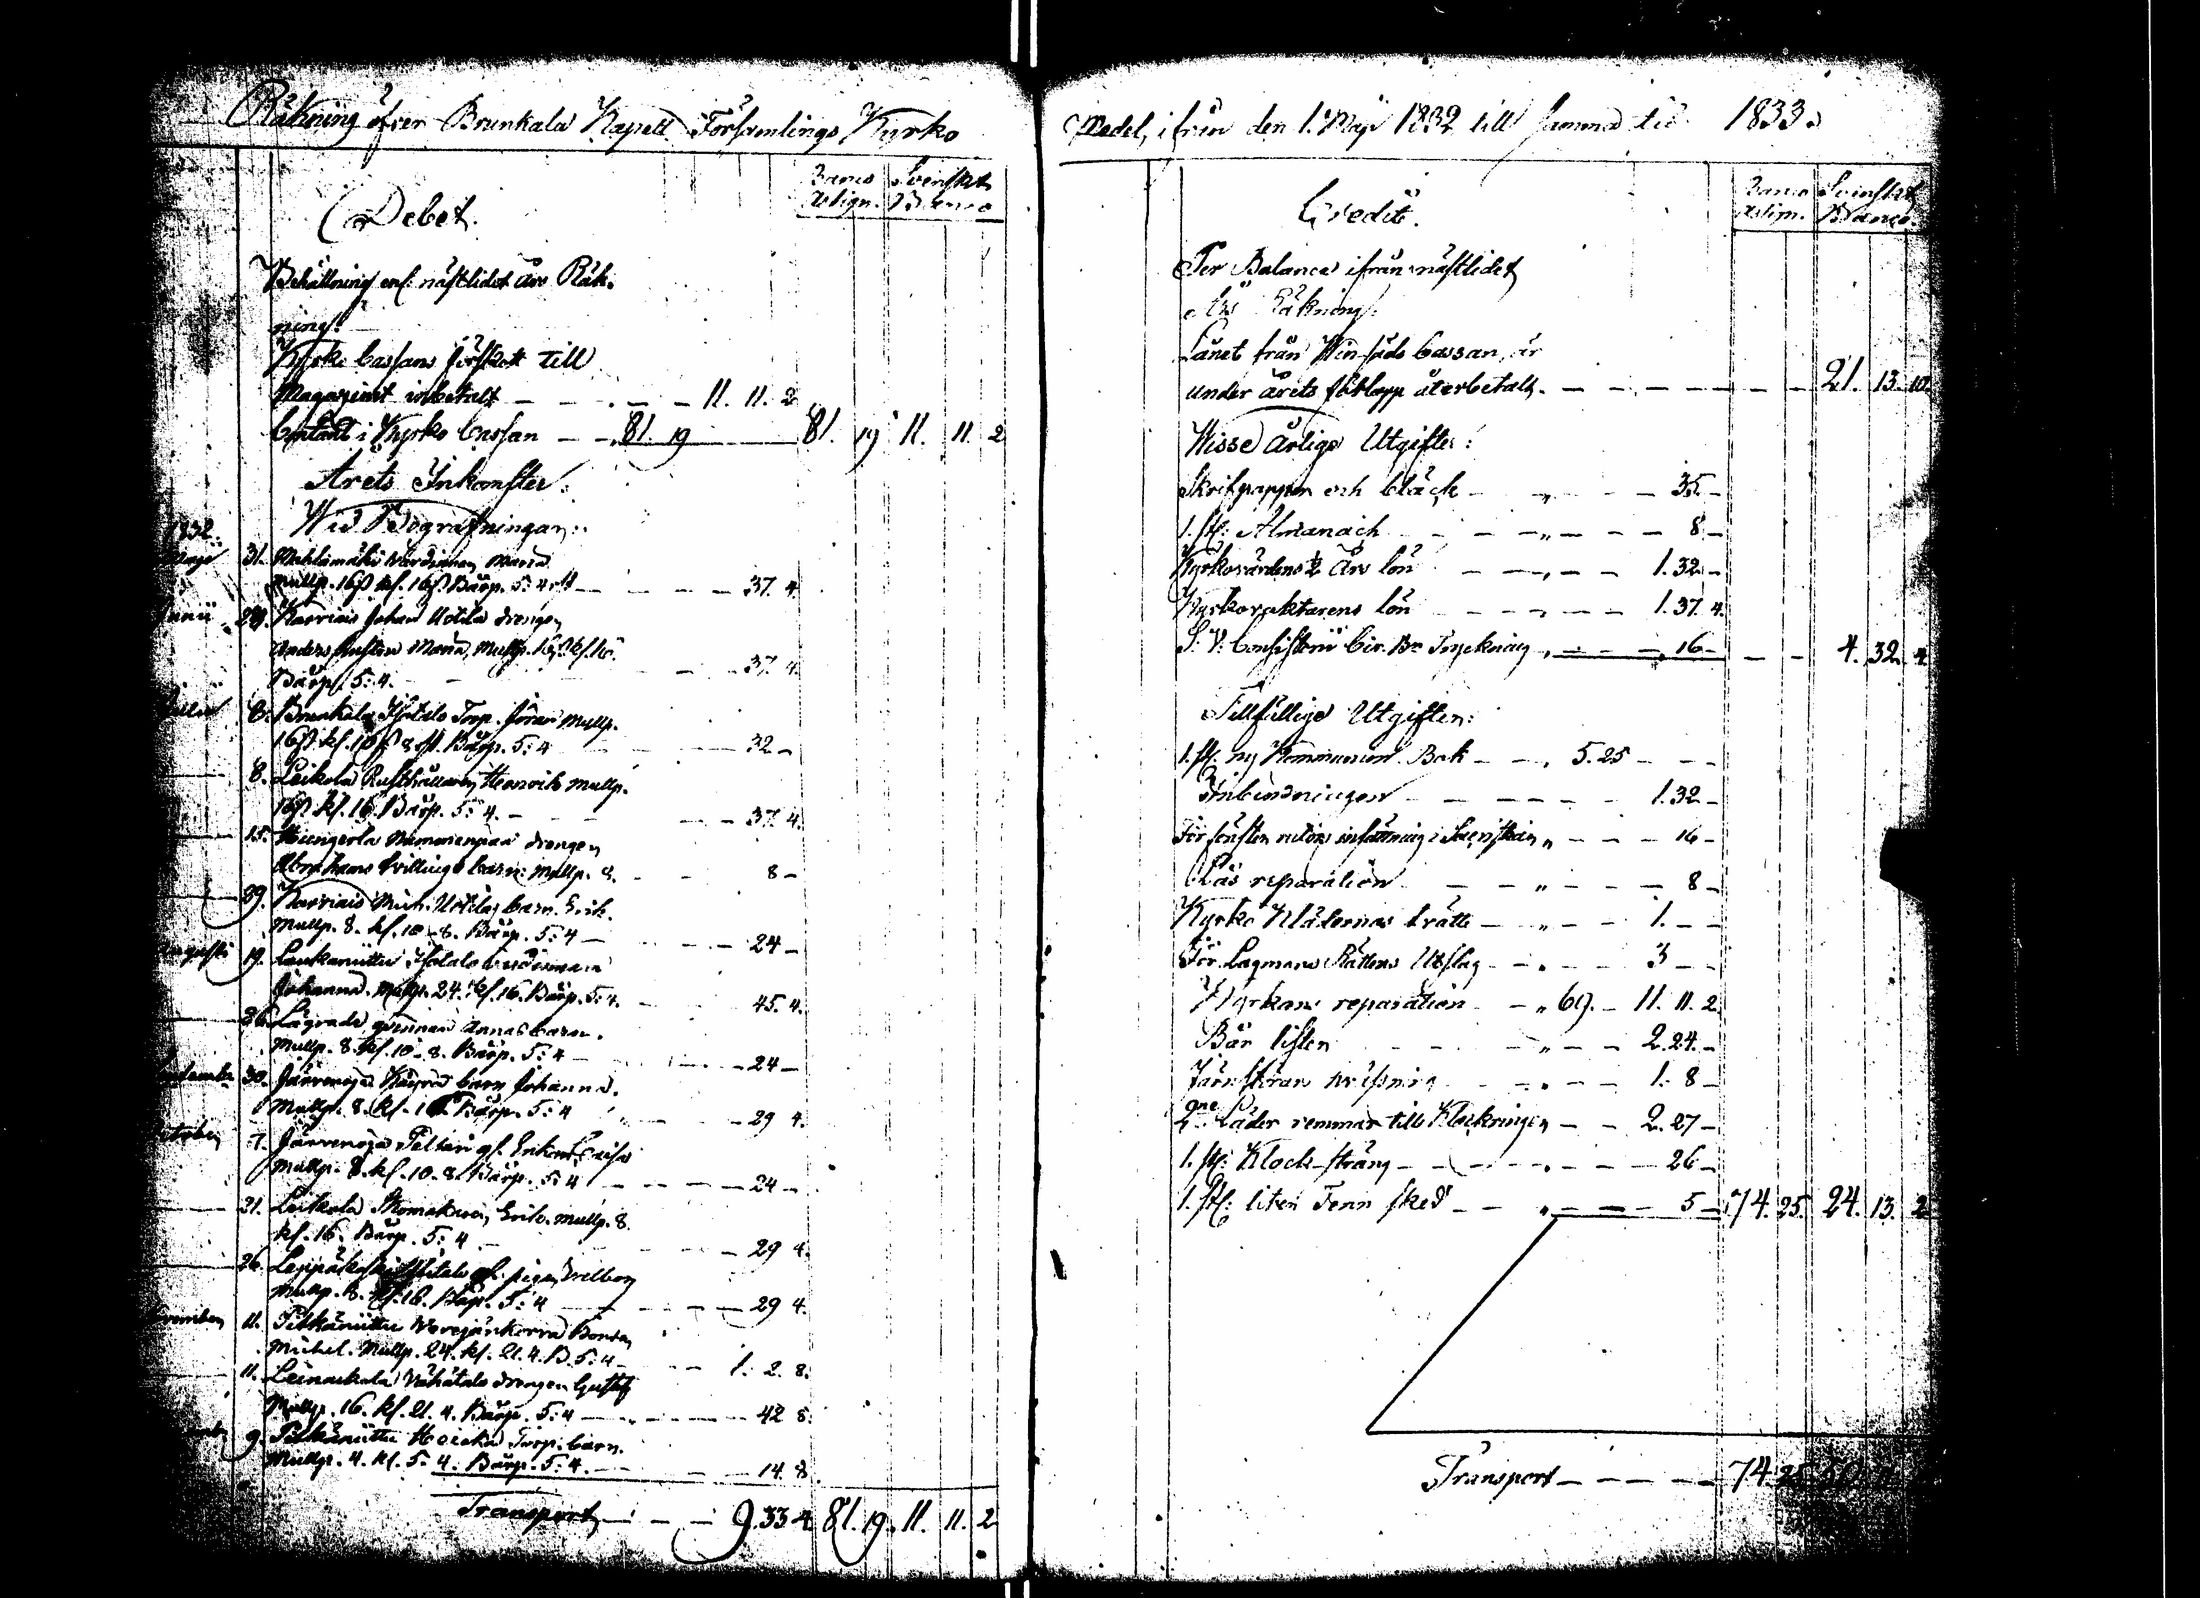 Räkning öfver Brunkala Kapell Församlings Kyrko
Debet.
Banco Assign. Svenskt Banco
Behållning enl: nästlidet års Räk-
ning:
Kyrko Cassans förskott till
Magazinet inbetalt — — — 11. 11. 2
Contant i Kyrko Cassan — — 81. 19 81. 19 11. 11. 2
Årets Inkomster:
Wid Begrafningar:
1832.
Maji 31. Maria
Mullp. 16 ß kl. 16 ß Bårp. 5: 4 — — — 37. 4.
Junii 29. Karviais Johan Uotila drengen
Anders hustru Maria, Mullp. 16 ß kl. 16.
Bårp. 5: 4. — — 37. 4.
Julii 8. Brunkala Isotalo Torp. Mullp.
16 ß kl. 10 ß 8 Bårp. 5: 4 — — 32 —
8. Leikola Rusthållaren Henrik Mullp.
16 ß kl. 16. Bårp. 5: 4. — — 37. 4.
15. drengen
Abrahams tvillings barn: Mullp. 8. — — 8 —
29. Karviais Mich. Uotilas barn Erik.
Mullp. 8. kl. 10 - 8. Bårp. 5: 4 — — 24 —
Augusti 19. Isotalo
Johanna. Mullp. 24. kl. 16. Bårp. 5: 4. — 45. 4.
26. qvinnan Annas barn.
Mullp. 8. kl. 10 - 8. Bårp. 5: 4 — — 24 —
30. barn Johanna.
Mullp. 8. kl. 16. Bårp. 5: 4 — 29 4.
October 7. Peltari
Mullp. 8. kl. 10. 8. Bårp. 5: 4 — — 24 —
21. Leikola Skomakaren Erik. Mullp. 8.
kl. 16. Bårp. 5: 4 — — 29 4.
26. pigan
Mullp. 8. kl. 16. Bårp. 5: 4 — — 29 4.
November 11. Pitkäniittu
Michel. Mullp. 24. kl. 21. 4. B. 5: 4 — 1. 2. 8.
11. Leinakkala Vähätalo drengen Gustaf
Mullp. 16. kl. 21. 4. Bårp. 5: 4 — — 42 8.
9. Pitkäniittu Torp: barn.
Mullp. 4. kl. 5: 4. Bårp. 5: 4. — — 14. 8.
Transport — — — 9. 33 4 81. 19. 11. 11. 2
Medel, ifrån den 1. Maji 1832 till samma tid 1833.
Credit.
Banco Assign. Svenskt Banco
Per Balance ifrån nästlidet
Års Räkning:
Lånet från Cassan, är
under årets förlopp återbetalt. — — — 21. 13. 10.
Wisse Årliga Utgifter:
Skrifpapper och bläck — „ — — 35. —
1. st: Almanach — — „ — — 8 —
Kyrkovärdens ½ Års lön — — „ — — 1. 32. —
Kyrkovaktarens lön — — „ — — 1. 37. 4.
S: V: Consistorii Cir. Br. Tryckning „ — — 16 — — — 4. 32. 4.
Tillfällige Utgifter:
1. st. ny Kommunion Bok — — „ 5. 25 — — —
Inbindningen — — — — 1. 32 —
För fönster rutors insättning i „ — — 16 —
Lås reparation — — „ — — 8 —
Kyrko Klädernas tvätt — „ — — 1. — —
För Lagmans Rättens Utslag — „ — — 3 — —
Kyrkans reparation — „ 69. — 11. 11. 2
Bår — — „ — — 2. 24. —
— — 1. 8 —
Läder remmar till Klockringen — — 2. 27 —
1. st: Klock-sträng — — „ — — 26 —
1. st: liten Tenn sked — — „ — — 5 — 74. 25. 24. 13. 2
Transport — — — — 74. 25.